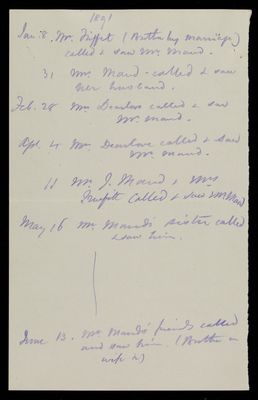 1891
Jan: 8. Mr. Tippet (Brother by marriage)
called & saw Mr. Maud.
31 Mrs Maud - called & saw
her husband.
Feb. 28 Mrs Dearlove called & saw
Mr. Maud.
Apl 4 Mrs. Dearlove called & saw
Mr. Maud.
11 Mr. J. Maud & Mrs
called & saw Mr Maud
May 16 Mr. Maud's sister called
& saw him.
June 13. Mr Maud's friends called
and saw him. (Brother in
wife &)